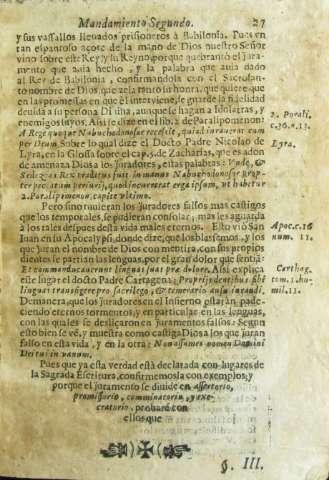 Mandamiento Segundo. 27
y sus vassallos lleuados prisioneros à Babilonia. Pues en
tan espantoso açote de la mano de Dios nuestro Señor
vino sobre este Rey y su Reyno porque quebrantò el jura-
mento que auia hecho, y la palabra que auia dado
al Rey de Babilonia, confirmandola con el Sacrosan-
to nombre de Dios, que zela tanto su honra, que quiere que
en las promessas en que èl interviene, se guarde la fidelidad
deuida a su persona Diuina, aunque se hagan a Idolatras, y
enemigos suyos. Assi se dize en el lib. 2. de Paralipomenon:
A Rege quoque Nabuchodonosor recessit, qui adiurauerat eum
per Deum Sobre lo qual dize el Docto Padre Nicolao de
Lyra, en la Glossa sobre el cap. 5. de Zacharias, que es adon
de amenaza Dios a los juradores, estas palabras: Vnde, &
Sedezias Rex traditus fuit in manus Nabuchodonosor prop-
ter peccatum periurij, quod incurrerat erga ipsum, vt habetur
2. Paralipomenon, capite vltimo.
2. Parali.
c. 36. n. 13.
Lyra.
Pero si no tuuieran los juradores falsos mas castigos
que los temporales, se pudieran consolar; mas les aguarda
à los tales despues desta vida males eternos. Esto viò San
Juan en su Apocalypsi, donde dize, que los blasfemos, y los
que juran el nombre de Dios con mentira, con sus propios
dientes se partian las lenguas, por el gran dolor que sentia:
Et commanducauerunt linguas suas præ dolore. Assi explica
este lugar el docto Padre Cartagena: Proprijs dentibus sibi
linguas transfigere pro sacrilego, & temerario ausu iurandi.
Demanera, que los juradores en el Infierno estaràn pade-
ciendo eternos tormentos, y en particular en las lenguas,
con las quales se deslizaron en juramentos falsos: Segun
esto bien se vè, y muestra como castiga Dios a los que juran
falso en esta vida, y en la otra: Non assumes nomen Domini
Dei tui in vanum.
Apoc. c. 16
num. 11.
Carthag.
tom. 1. ho-
mil. 11.
Pues que ya esta verdad està declarada con lugares de
la Sagrada Escritura, confirmemosla con exemplos, y
porque el juramento se diuide en assertorio,
promissorio, comminatorio, y exe-
cratorio, probarè con
ellos que
§. III.